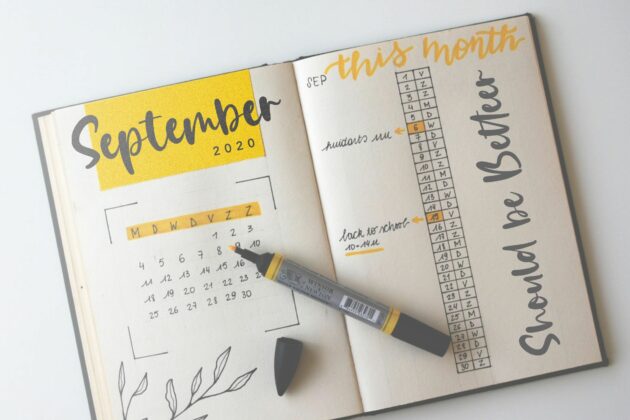 September
2020
M D W D V Z Z
1 2 3
4 5 6 7 8 9 10
11 12 13 14 15 16
18 19 20 21 22 23
25 26 27 28 29 30
SEP this month
1 V
2 Z
3 Z
4 M
5 D
6 W
7 D
8 V
9 Z
10 Z
11 M
12 D
13 W
14 D
15 V
16 Z
17 Z
18 M
19 D
20 W
21 D
22 V
23 Z
24 Z
25 M
26 D
27 W
28 D
29 V
30 Z
back to school
10-14u
Should be Betteer